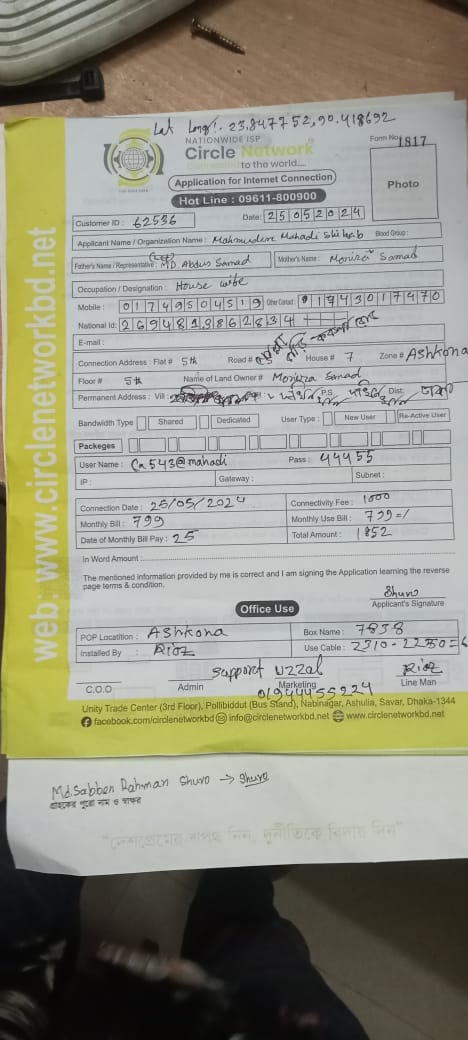 Lat Long:- 23.847752,90.418692
NATIONWIDE ISP
Circle Network
Connected to the world....
Form No: 1817
Application for Internet Connection
Photo
Hot Line : 09611-800900
Customer ID : 62536
Date: 25052024
Applicant Name / Organization Name : Mahmudere Mahadi Shihab Blood Group :
Father's Name / Representative : MD. Abdus Samad Mother's Name : Monira Samad
Occupation / Designation : House wife
Mobile : 01749504519 Other Contact : 01743017470
National Id: 2694813862834
E-mail :
Connection Address : Flat # 5th Road # House # 7 Zone # Ashkona
Floor # 5th Name of Land Owner # Monira Samad
Permanent Address : Vill : P.S. Dist: ঢাকা
Bandwidth Type Shared Dedicated User Type : New User Re-Active User
Packeges
User Name : Ca543@mahadi Pass : 44455
IP : Gateway : Subnet :
Connection Date : 25/05/2024 Connectivity Fee : 1000
Monthly Bill : 799 Monthly Use Bill : 799=/
Date of Monthly Bill Pay : 25 Total Amount : 1852
In Word Amount :
The mentioned information provided by me is correct and I am signing the Application learning the reverse
page terms & condition.
Shuvo
Applicant's Signature
Office Use
POP Locatition : Ashkona Box Name : 7858
Installed By : Riaz Use Cable : 2310-2250=6
Support Uzzal Riaz
C.O.O Admin Marketing Line Man
01944455224
Unity Trade Center (3rd Floor), Pollibiddut (Bus Stand), Nabinagar, Ashulia, Savar, Dhaka-1344
facebook.com/circlenetworkbd info@circlenetworkbd.net www.circlenetworkbd.net
web: www.circlenetworkbd.net
Md. Sabber Rahman Shuvo → Shuvo
গ্রাহকের পুরো নাম ও স্বাক্ষর
"দেশপ্রেমের শপথ নিন, দুর্নীতিকে বিদায় দিন"